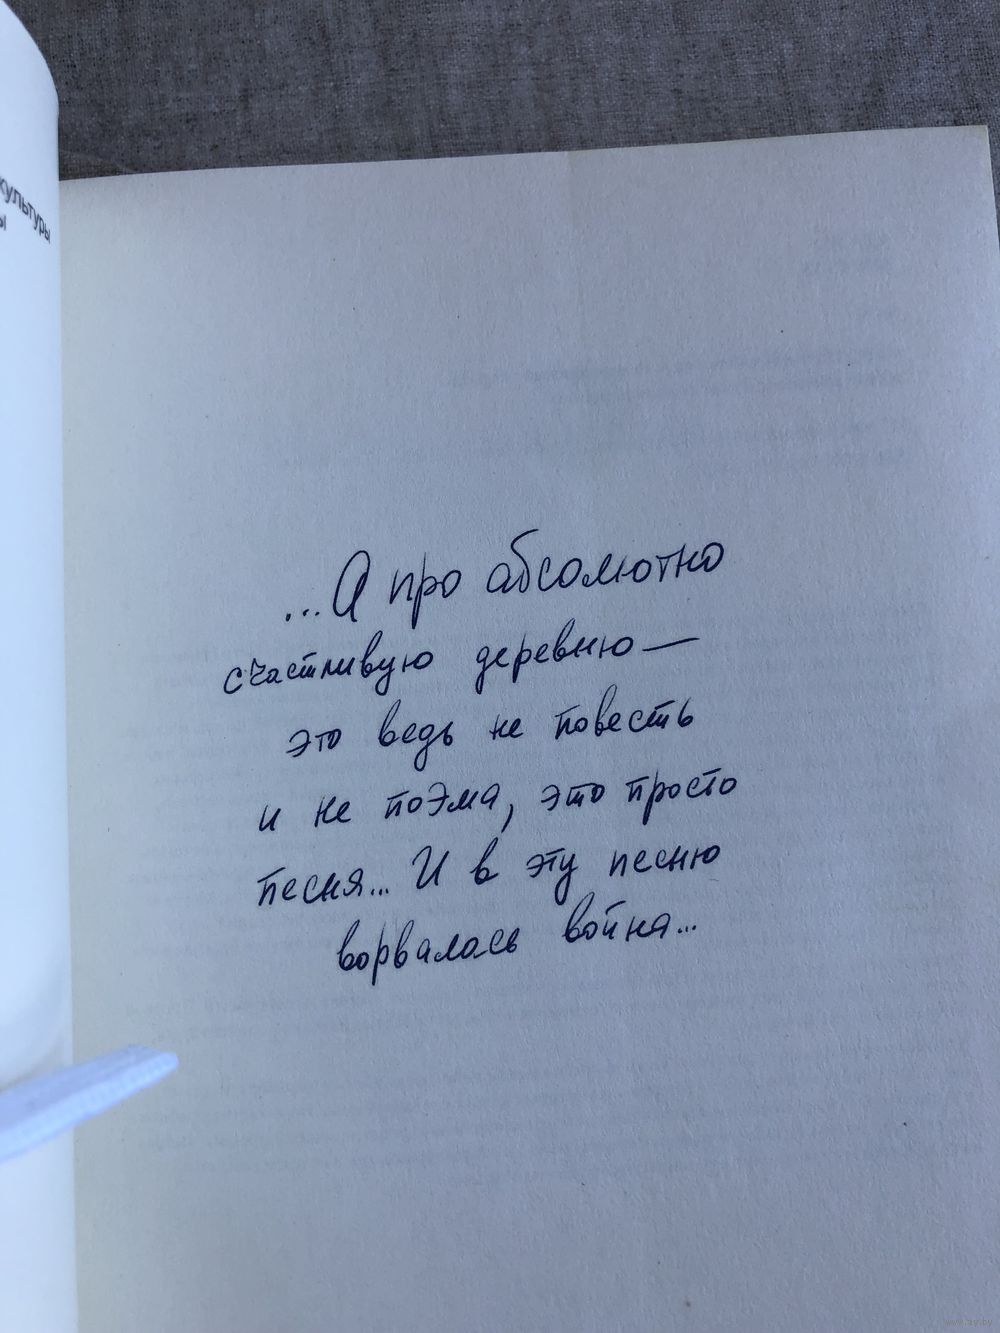 культуры
...А про абсолютно
счастливую деревню —
это ведь не повесть
и не поэма, это просто
песня... И в эту песню
ворвалась война...
www.ay.by